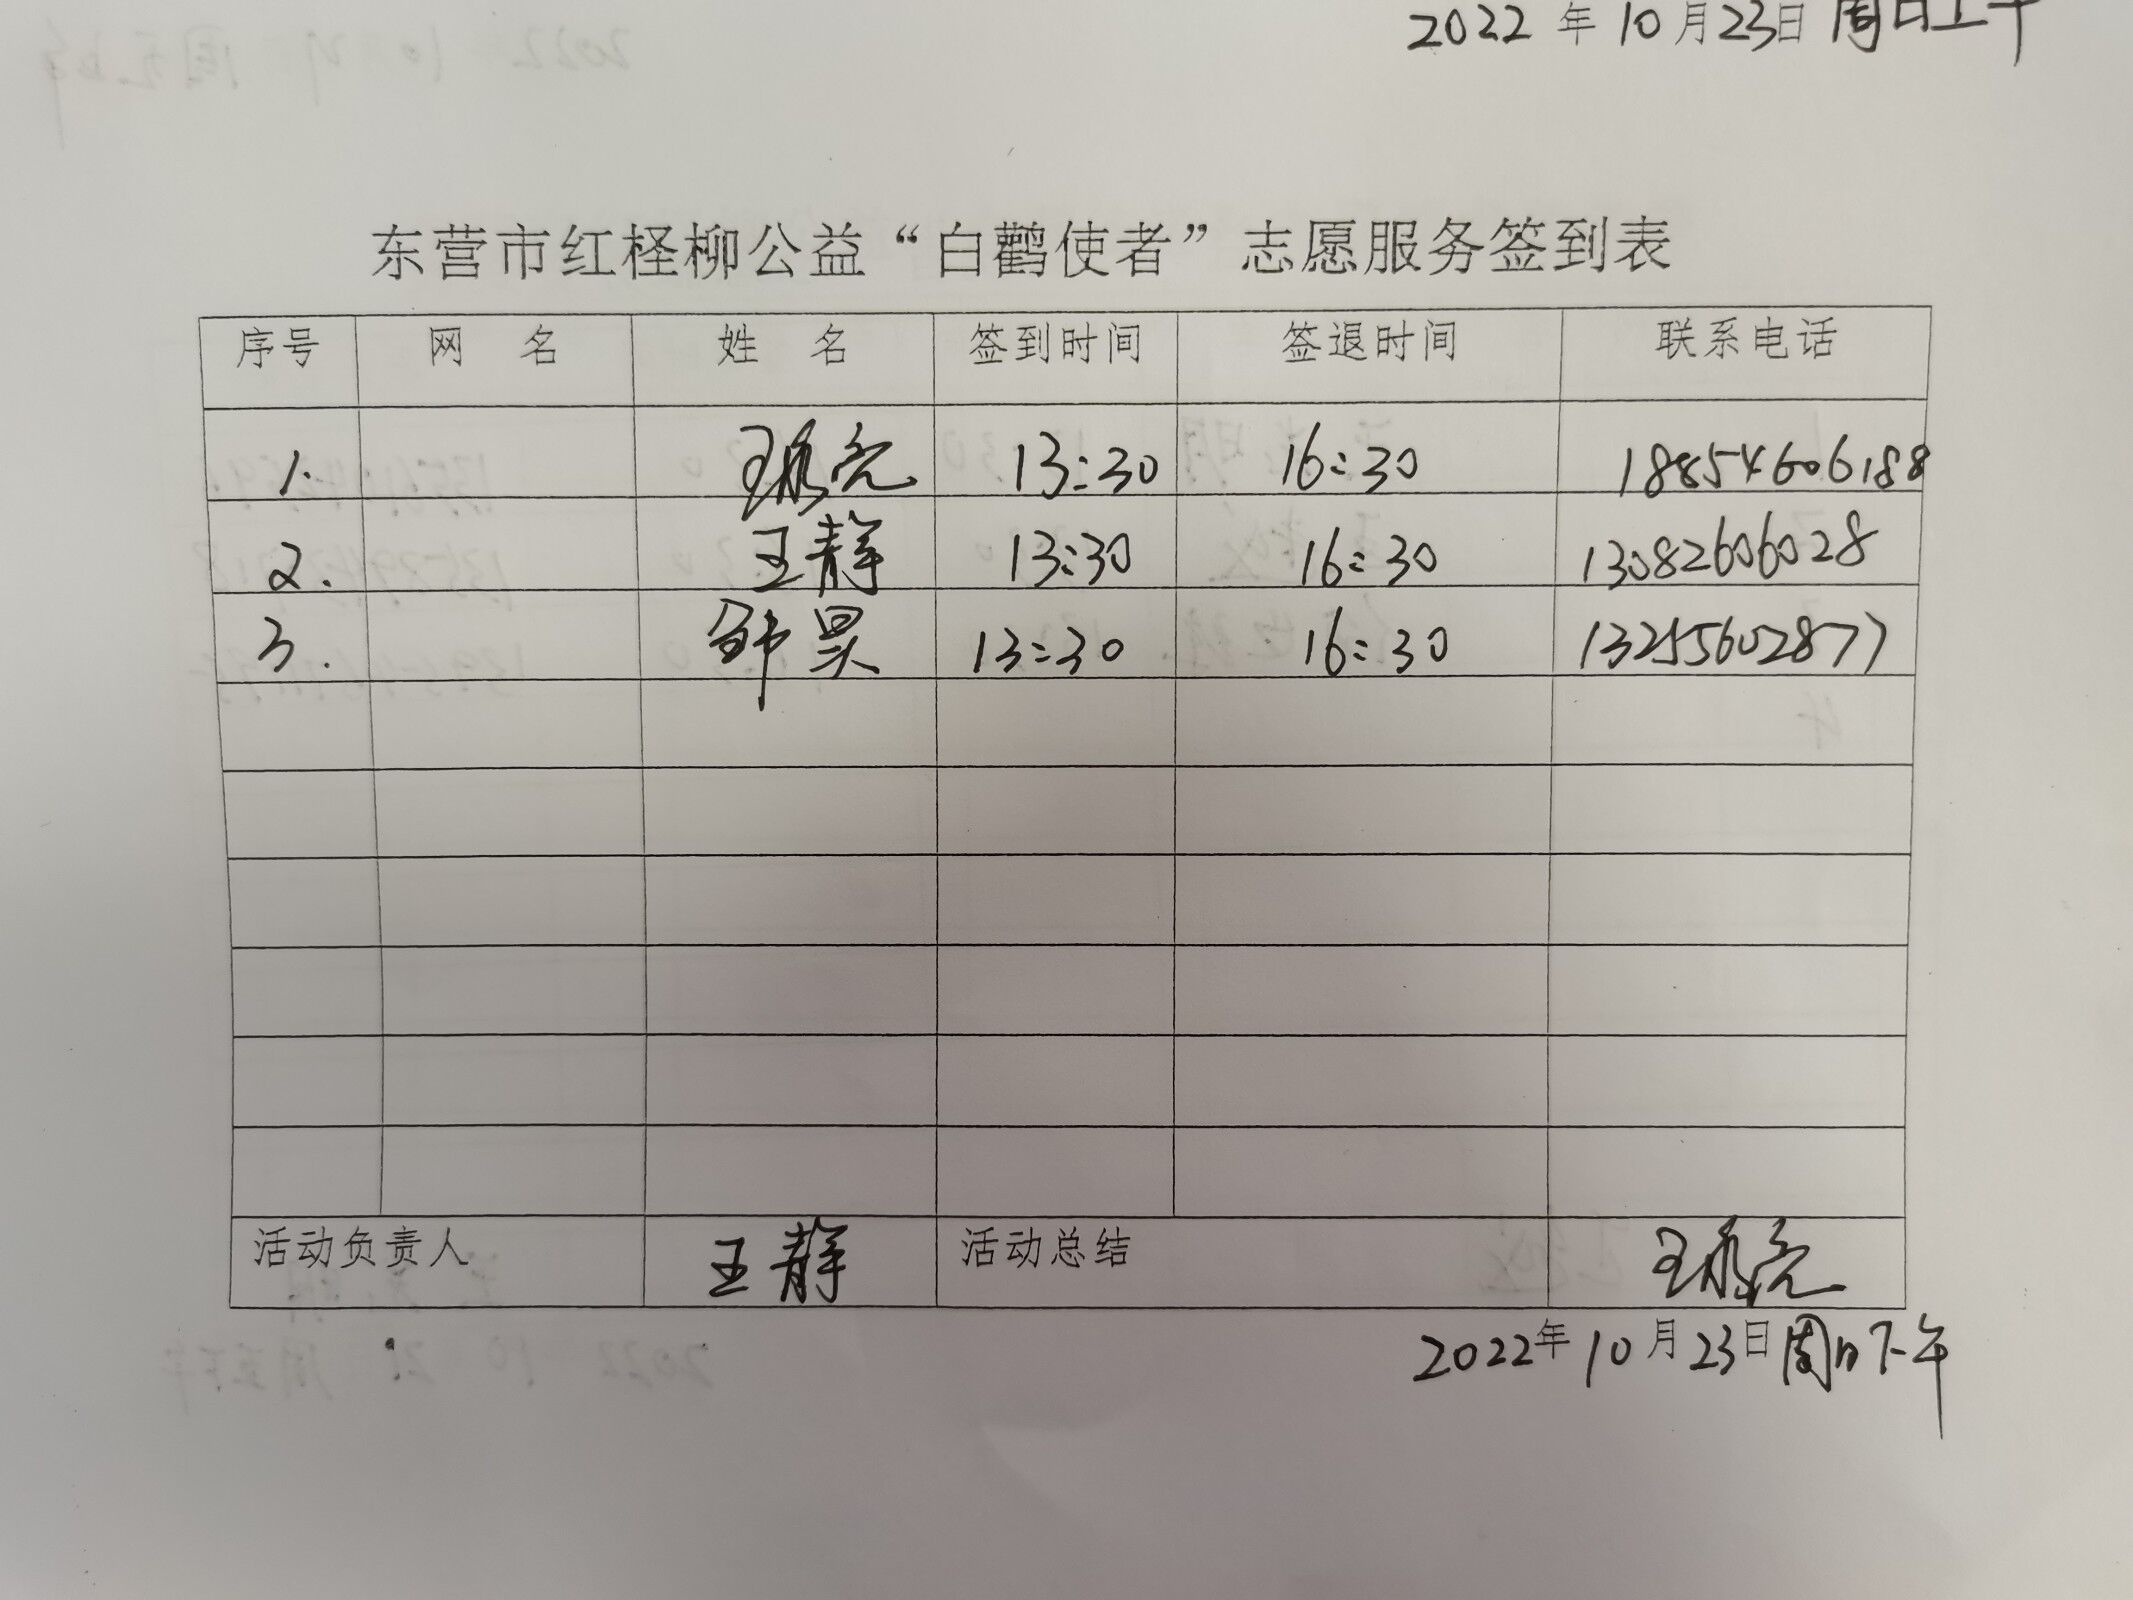 2022年10月23日周日上午
东营市红柽柳公益“白鹳使者”志愿服务签到表
序号 网 名 姓 名 签到时间 签退时间 联系电话
1. 王 亮 13:30 16:30 18854606188
2. 王静 13:30 16:30 13082606028
3. 昊 13:30 16:30 13255602877
活动负责人 王静 活动总结 王 亮
2022年10月23日周日下午